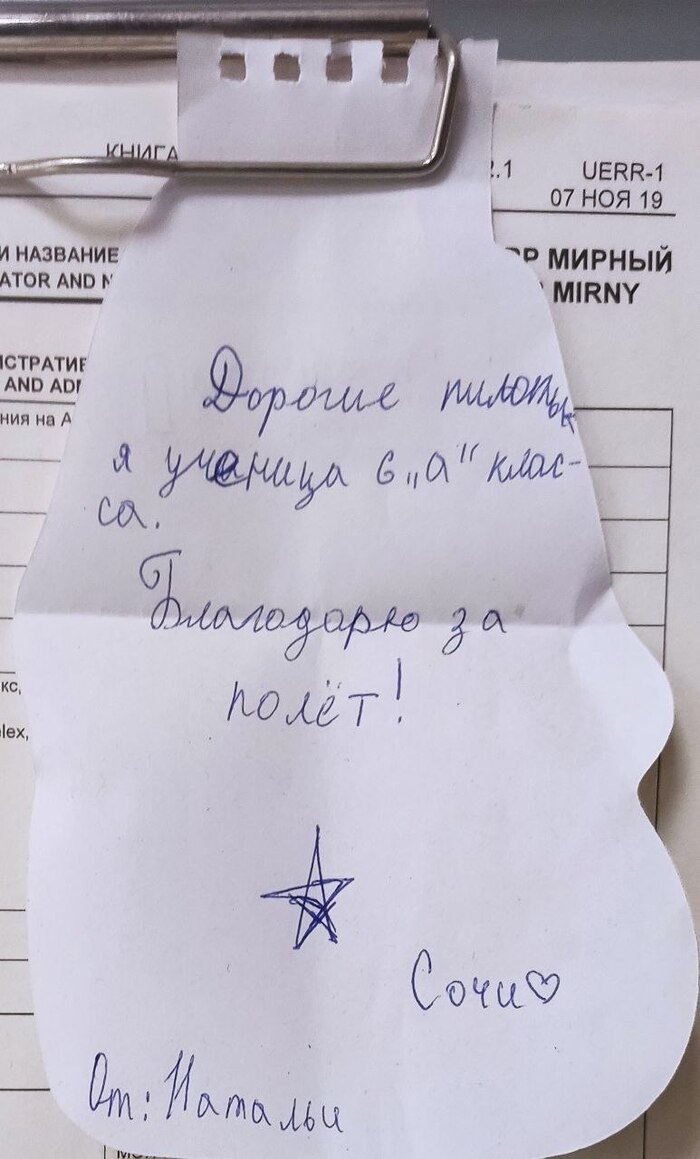 КНИГА
.1 UERR-1
07 НОЯ 19
И НАЗВАНИЕ
МИРНЫЙ
ATOR AND
MIRNY
AND
ния на А
Дорогие пилоты,
я ученица 6 „а“ клас-
са.
Благодарю за
полёт!
Сочи♡
От: Натальи